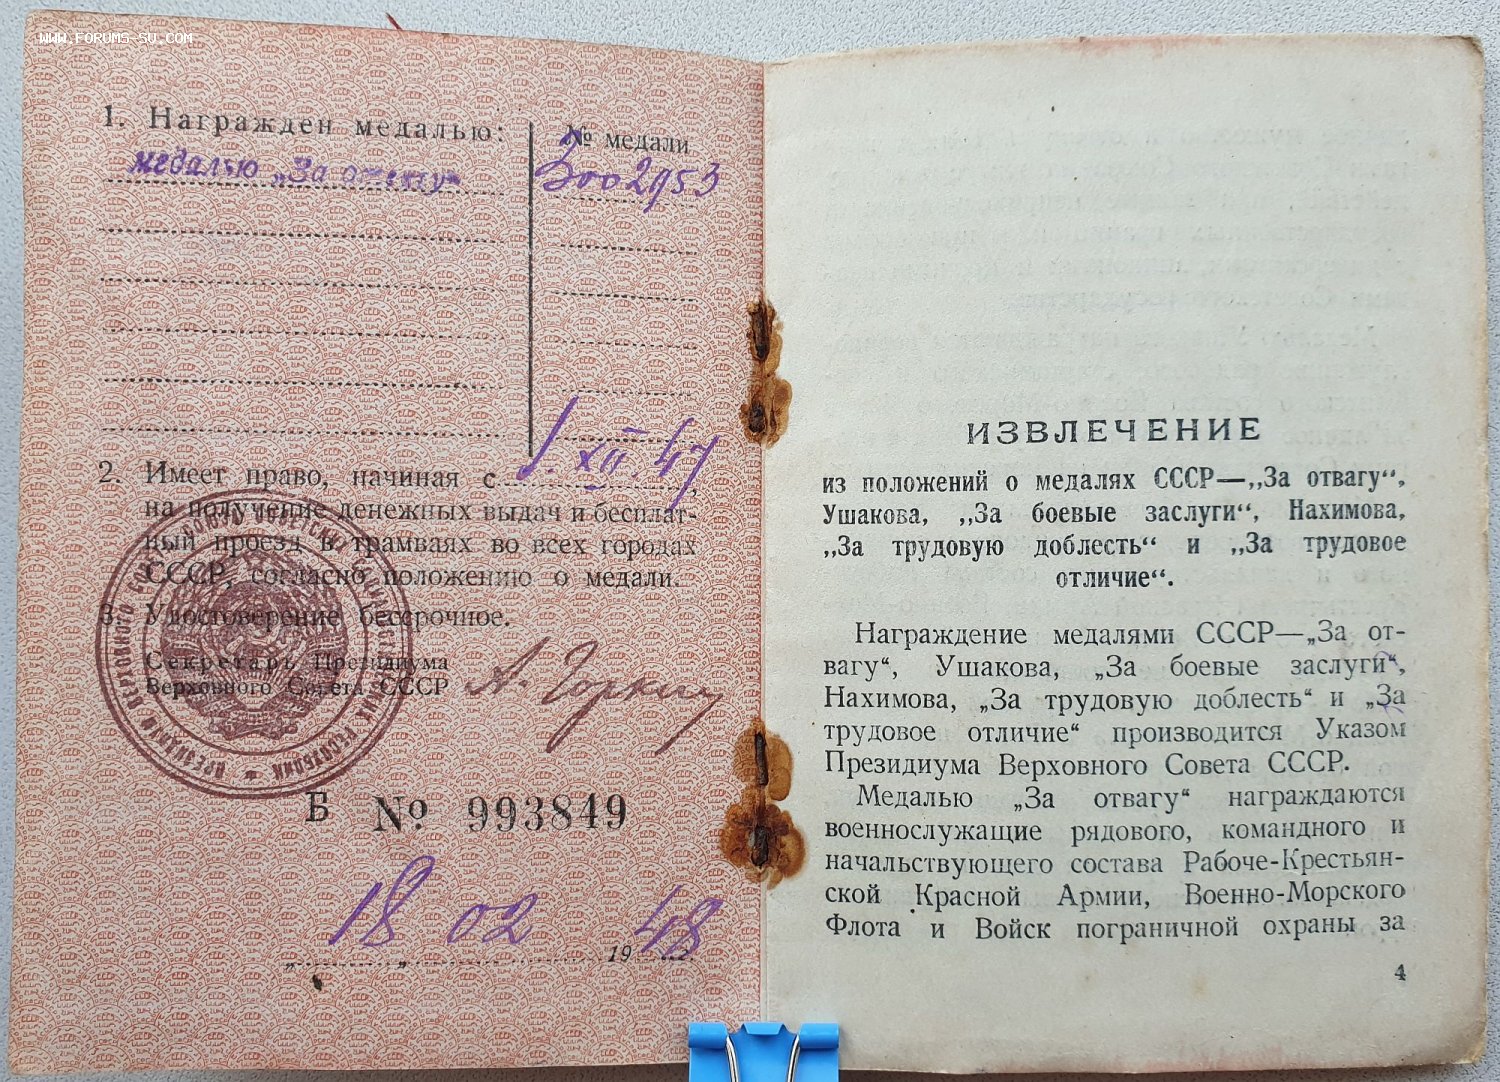 www.forums-su.com
1. Награжден медалью:
№ медали
медалью „За отвагу“
3002953
2. Имеет право, начиная с 1. XII. 47,
на получение денежных выдач и бесплат-
ный проезд в трамваях во всех городах
СССР, согласно положению о медали.
3. Удостоверение бессрочное.
Секретарь Президиума
Верховного Совета СССР
А. Горкин
Б № 993849
„18“ 02 1948
ИЗВЛЕЧЕНИЕ
из положений о медалях СССР—„За отвагу“,
Ушакова, „За боевые заслуги“, Нахимова,
„За трудовую доблесть“ и „За трудовое
отличие“.
Награждение медалями СССР—„За от-
вагу“, Ушакова, „За боевые заслуги“,
Нахимова, „За трудовую доблесть“ и „За
трудовое отличие“ производится Указом
Президиума Верховного Совета СССР.
Медалью „За отвагу“ награждаются
военнослужащие рядового, командного и
начальствующего состава Рабоче-Крестьян-
ской Красной Армии, Военно-Морского
Флота и Войск пограничной охраны за
4